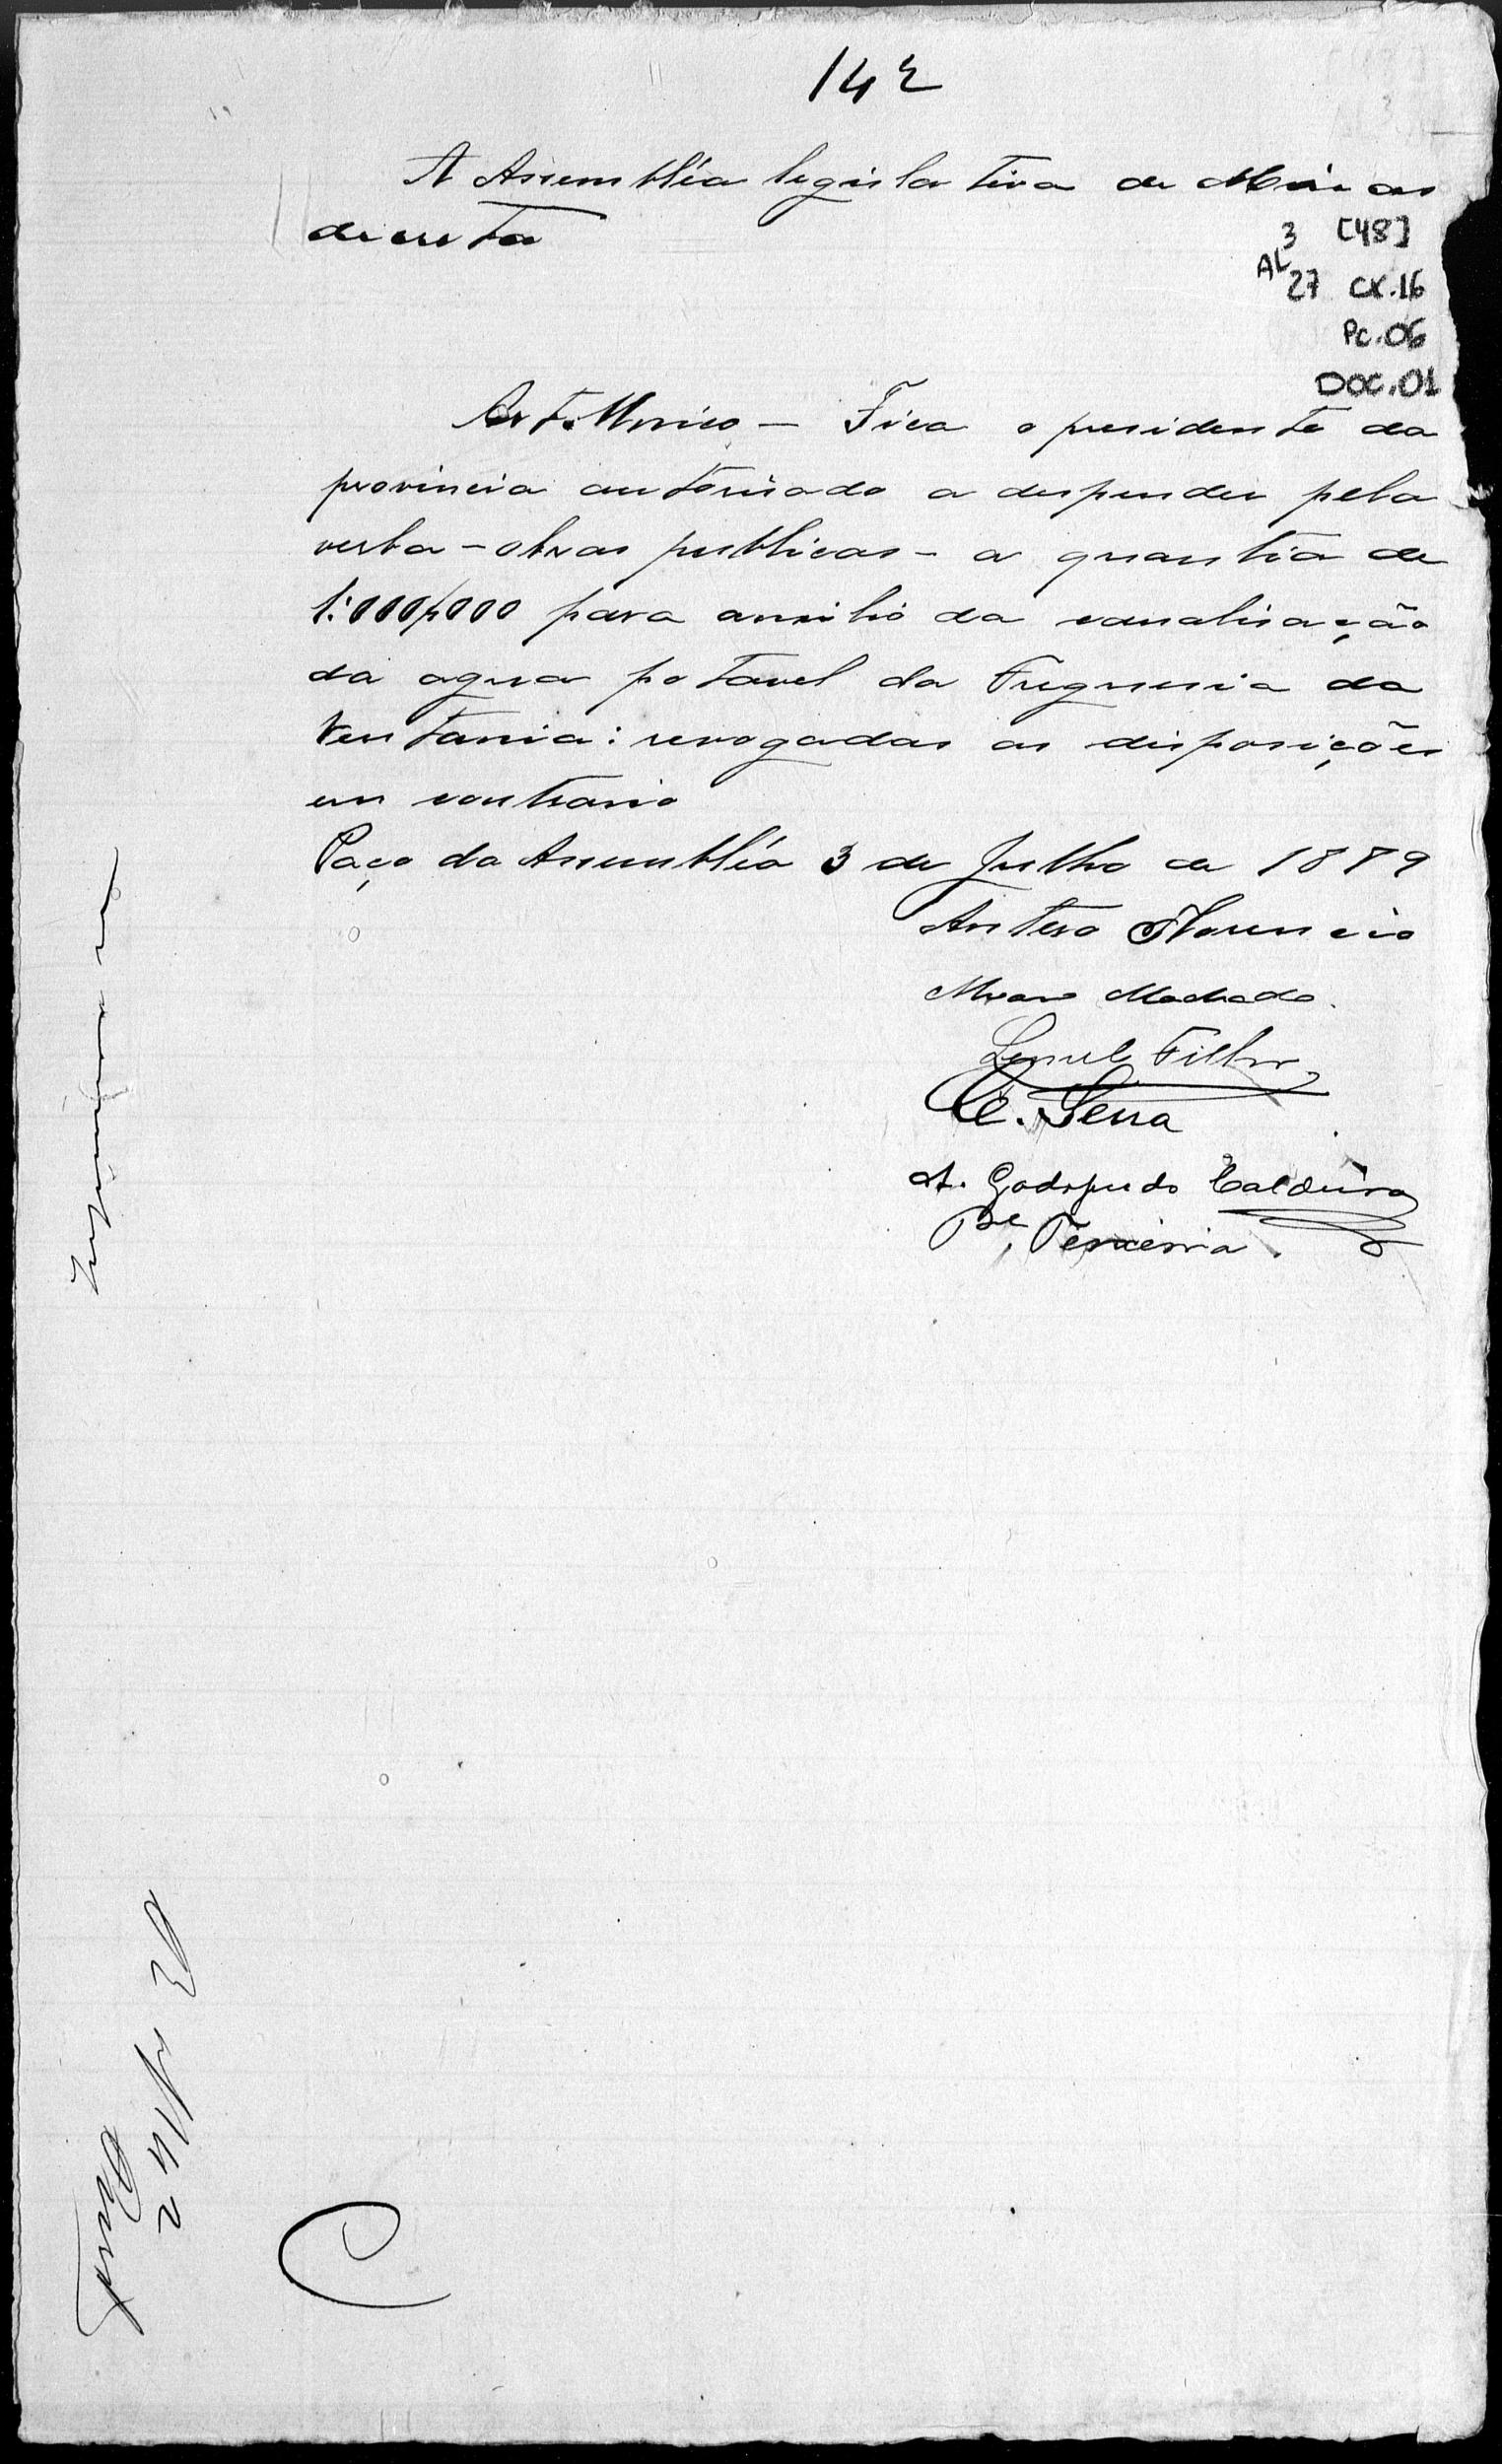 142
A Assembléa legislativa de Minas
decreta
3 [48]
AL 27 CX.16
Pc.06
DOC.01
Art. Unico — Fica o presidente da
provincia autorisado a despender pela
verba - obras publicas - a quantia de
1:000$000 para auxilio da canalisação
da agua potavel da Freguesia da
Ventania: revogadas as disposições
em contrario
Paço da Assembléa 3 de Julho de 1889
Antero Florencio
Alvaro Machado.
Filho
C. Serra
A. Godofredo Caldeira
Pe. Teixeira.